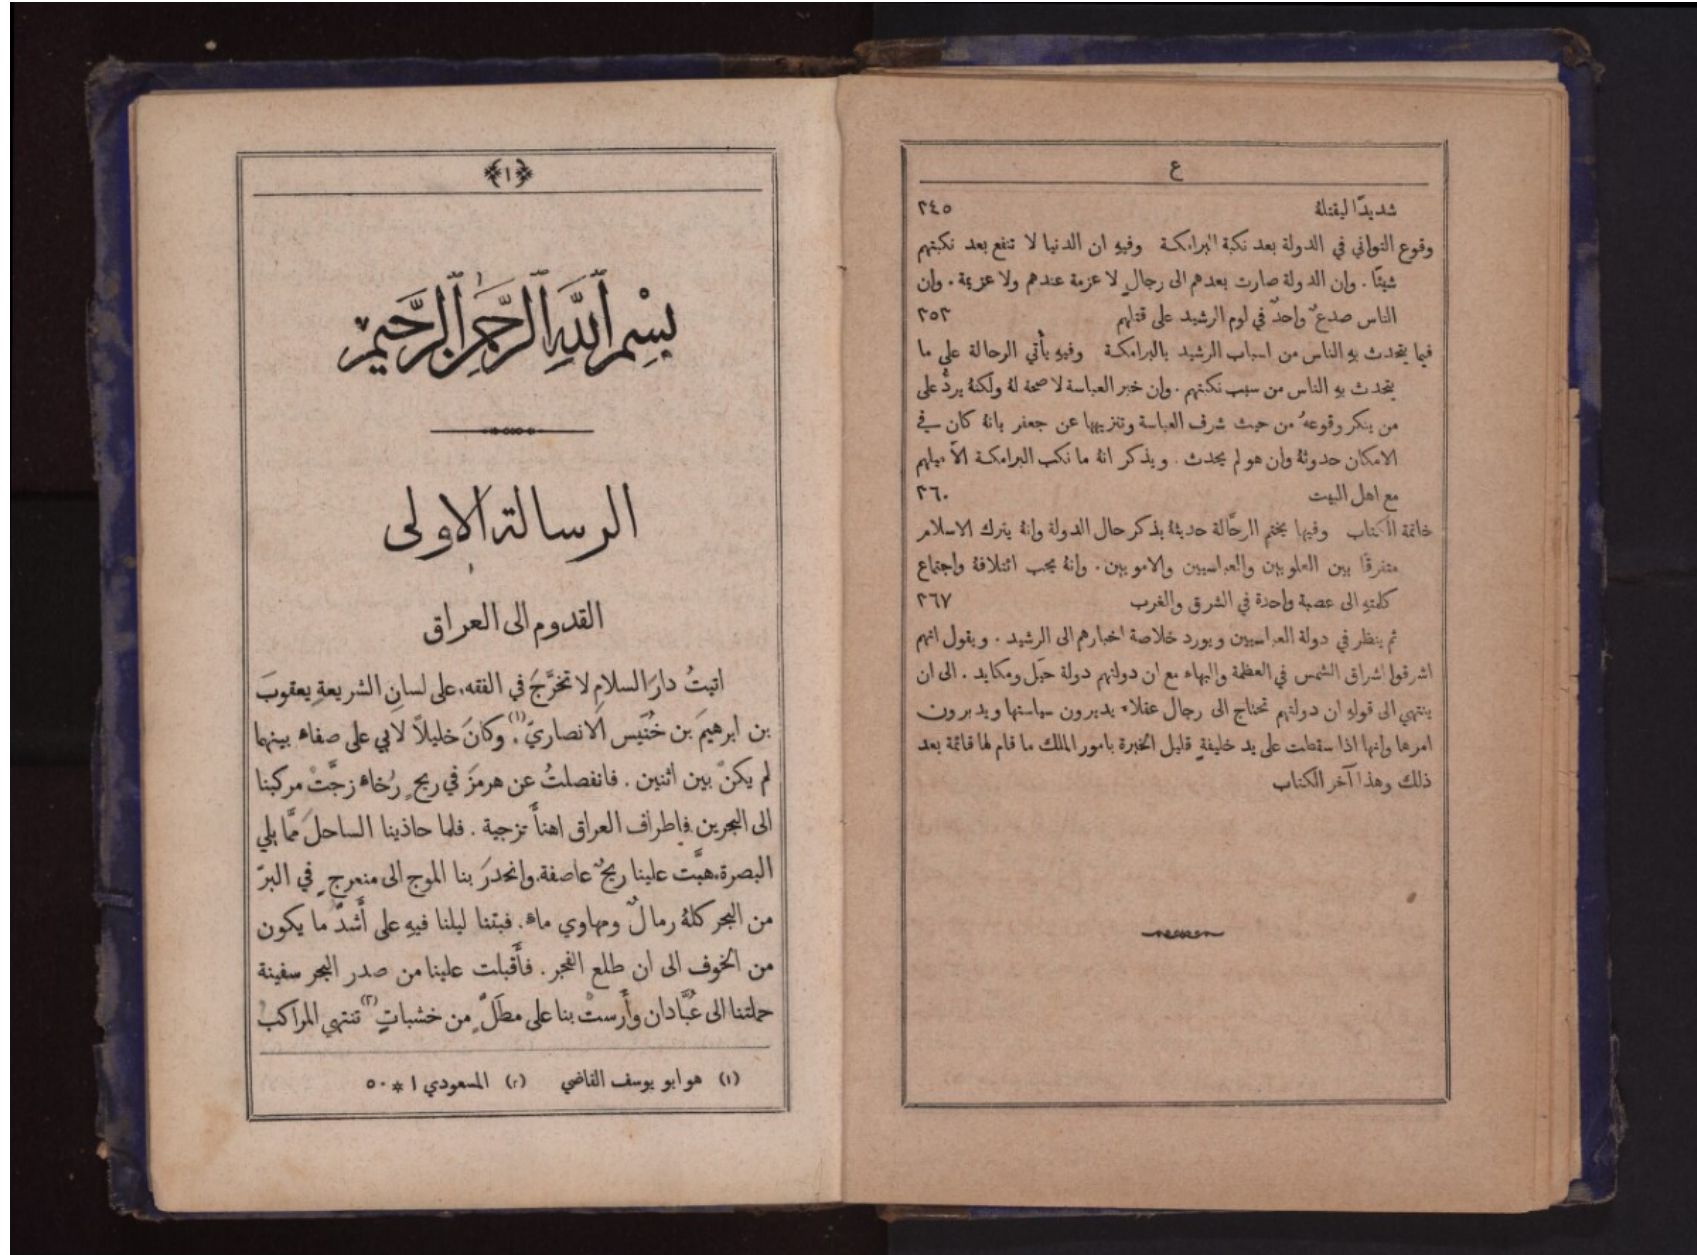 ع
شديدًا ليقتلهُ ٢٤٥
وقوع التواني في الدولة بعد نكبة البرامكة وفيهِ ان الدنيا لا تنفع بعد نكبتهم
شيئًا . وان الدولة صارت بعدهم الى رجالٍ لا عزمة عندهم ولا عزيمة . وان
الناس صدعٌ واحدٌ في لوم الرشيد على قتلهم ٢٥٢
فيما يتحدث بهِ الناس من اسباب الرشيد بالبرامكة وفيهِ يأتي الرحالة على ما
يتحدث بهِ الناس من سبب نكبتهم . وان خبر العباسة لا صحة لهُ ولكنهُ يردُّ على
من ينكر وقوعهُ من حيث شرف العباسة وتنزيهها عن جعفر بانهُ كان في
الامكان حدوثهُ وان هو لم يحدث . ويذكر انهُ ما نكب البرامكة الاَّ ميلهم
مع اهل البيت ٢٦٠
خاتمة الكتاب وفيها يختم الرحَّالة حديثهُ بذكر حال الدولة وانهُ يترك الاسلام
متفرقًا بين العلويين والعباسيين والامويين . وانهُ يحب ائتلافهُ واجتماع
كلمتهِ الى عصبة واحدة في الشرق والغرب ٢٦٧
ثم ينظر في دولة العباسيين ويورد خلاصة اخبارهم الى الرشيد . ويقول انهم
اشرقوا اشراق الشمس في العظمة والبهاء مع ان دولتهم دولة حيَل ومكايد . الى ان
ينتهي الى قولهِ ان دولتهم تحتاج الى رجال عقلاء يديرون سياستها ويدبرون
امرها وانها اذا سقطت على يد خليفةٍ قليل الخبرة بامور الملك ما قام لها قائمة بعد
ذلك وهذا آخر الكتاب
﴿١﴾
بِسْمِ ٱللَّهِ ٱلرَّحْمَٰنِ ٱلرَّحِيمِ
الرسالة الاولى
القدوم الى العراق
اتيتُ دارَ السلامِ لاتخرَّجَ في الفقه، على لسانِ الشريعةِ يعقوبَ
بن ابرهيمَ بن خُنَيس الانصاريّ(١)، وكانَ خليلاً لابي على صفاءٍ بينهما
لم يكنْ بين اثنين . فانفصلتُ عن هرمزَ في ريحٍ رُخاءٍ زجَّتْ مركبنا
الى البحرين فاطراف العراق اهنأَ تزجية . فلما حاذينا الساحلَ ممَّا يلي
البصرة، هبَّت علينا ريحٌ عاصفة، وانحدرَ بنا الموج الى منعرجٍ في البرّ
من البحر كلهُ رمالٌ ومهاوي ماءٍ . فبتنا ليلنا فيهِ على أَشدّ ما يكون
من الخوف الى ان طلع الفجر . فأَقبلت علينا من صدر البحر سفينة
حملتنا الى عَبَّادان وأَرستْ بنا على مطَلٍّ من خشباتٍ(٢) تنتهي المراكب
(١) هو ابو يوسف القاضي (٢) المسعودي ١ * ٥٠